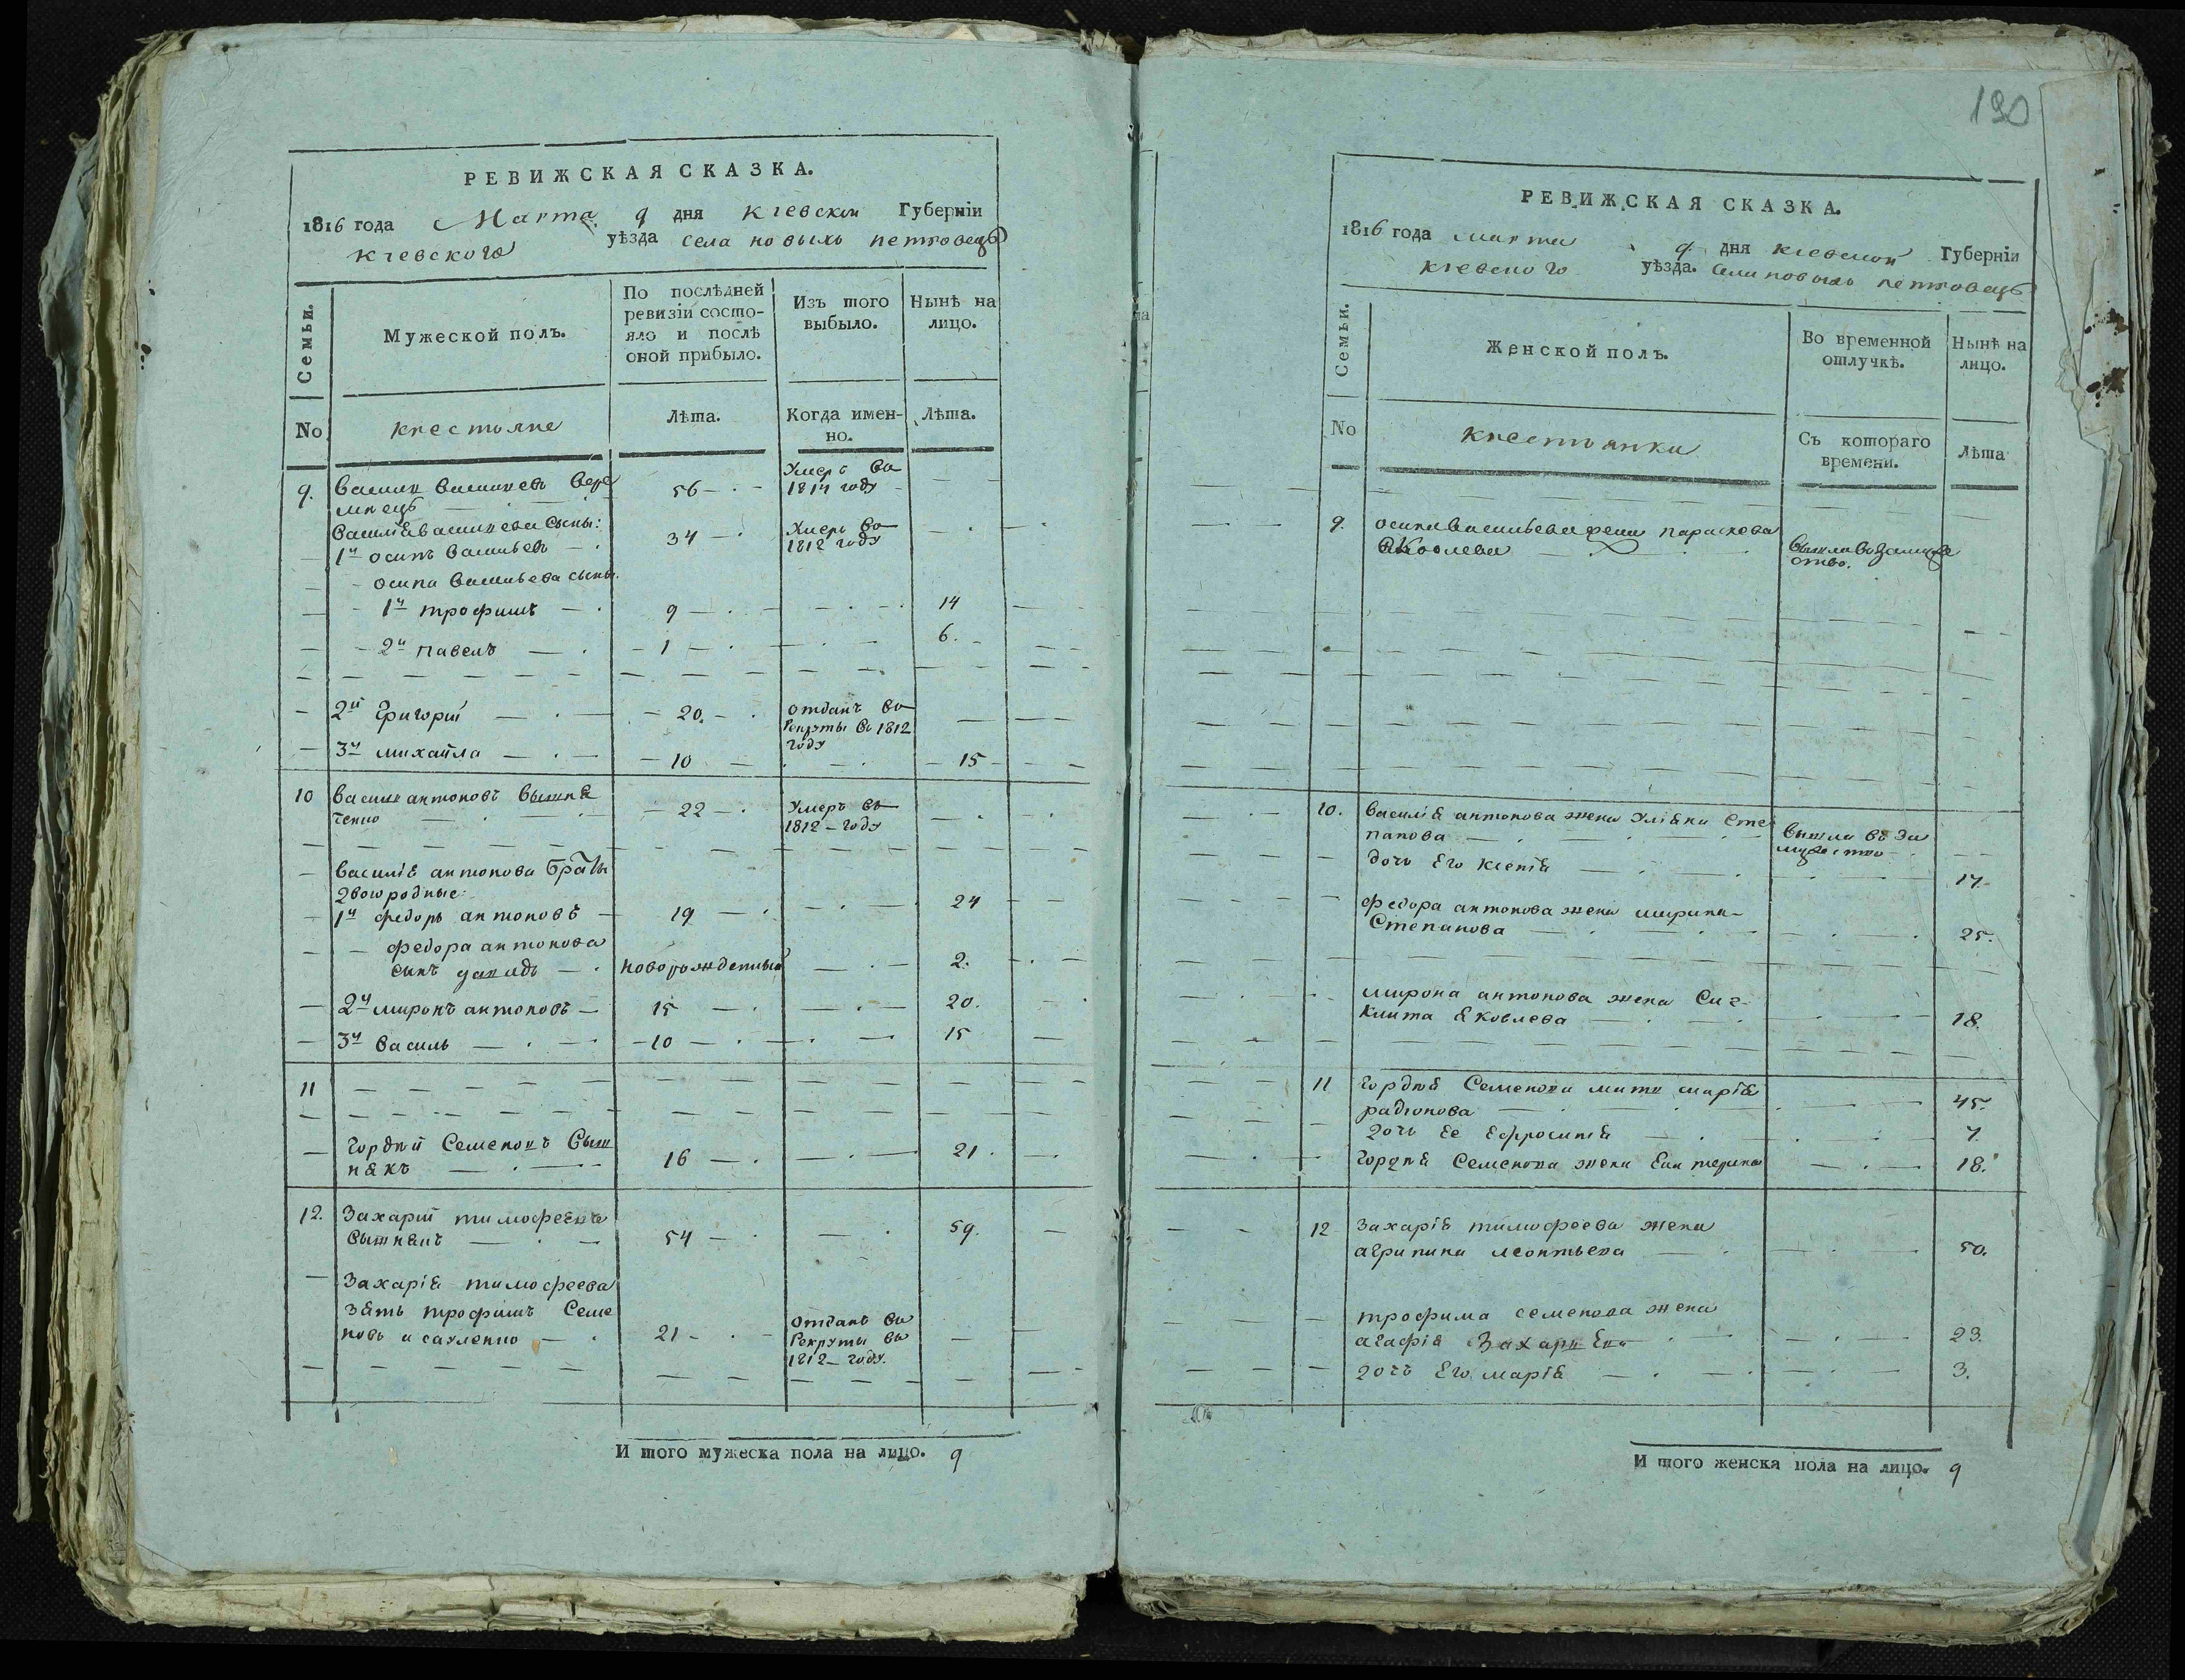 РЕВИЖСКАЯ СКАЗКА.
1816 года Марта 9 дня кіевской Губерніи
кіевского уѣзда села новыхъ петровецъ
Семьи.
Мужеской полъ.
По послѣдней
ревизіи состо-
яло и послѣ
оной прибыло.
Изъ того
выбыло.
Нынѣ на
лицо.
No
крестьяне
Лѣта.
Когда имен-
но.
Лѣта.
9. Василій Васильевъ 56 Умеръ во
1814 году
Василія васильева сыны:
1й осипъ Васильевъ 34 Умеръ во
1812 году
осипа Васильева сыны
1й трофимъ 9 14
2й павелъ 1 6.
2й Григорій 20. отданъ во
Рекруты во 1812
году
3й михайла 10 15
10 Василій антоновъ 22 Умеръ въ
1812 году
Василія антонова Браты
2воюродные:
1й федоръ антоновъ 19 24
федора антонова
сынъ новорожденный 2.
2й миронъ антоновъ 15 20.
3й василь 10 15
11
Гордѣй Семеновъ 16 21.
12. Захарій тимофеевъ
54 59.
Захарія тимофеева
зять трофимъ Семе
новъ 21 отданъ во
Рекруты во
1812 году.
И того мужеска пола на лицо. 9
190
РЕВИЖСКАЯ СКАЗКА.
1816 года марта 9 дня кіевской Губерніи
кіевского уѣзда. села новыхъ петровецъ
Семьи.
Женской полъ.
Во временной
отлучкѣ.
Нынѣ на
лицо.
No
крестьянки
Съ котораго
времени.
Лѣта
9. осипа Васильева жена параскева
Яковлева Вышла въ замуже
ство.
10. Василія антонова жена Уліяна Сте
панова вышла въ за
мужество
дочь Его ксенія 17.
федора антонова жена марина
Степанова 25.
мирона антонова жена Сиг-
клита Яковлева 18.
11 Гордѣя Семенова мать марія
радіонова 45.
дочь Ее Ефросинія 7.
Гордѣя Семенова жена Екатерина 18.
12 Захарія тимофеева жена
агрипина леонтьева 50.
трофима семенова жена
агафія Захарієва 23.
дочь Его марія 3.
И того женска пола на лицо. 9